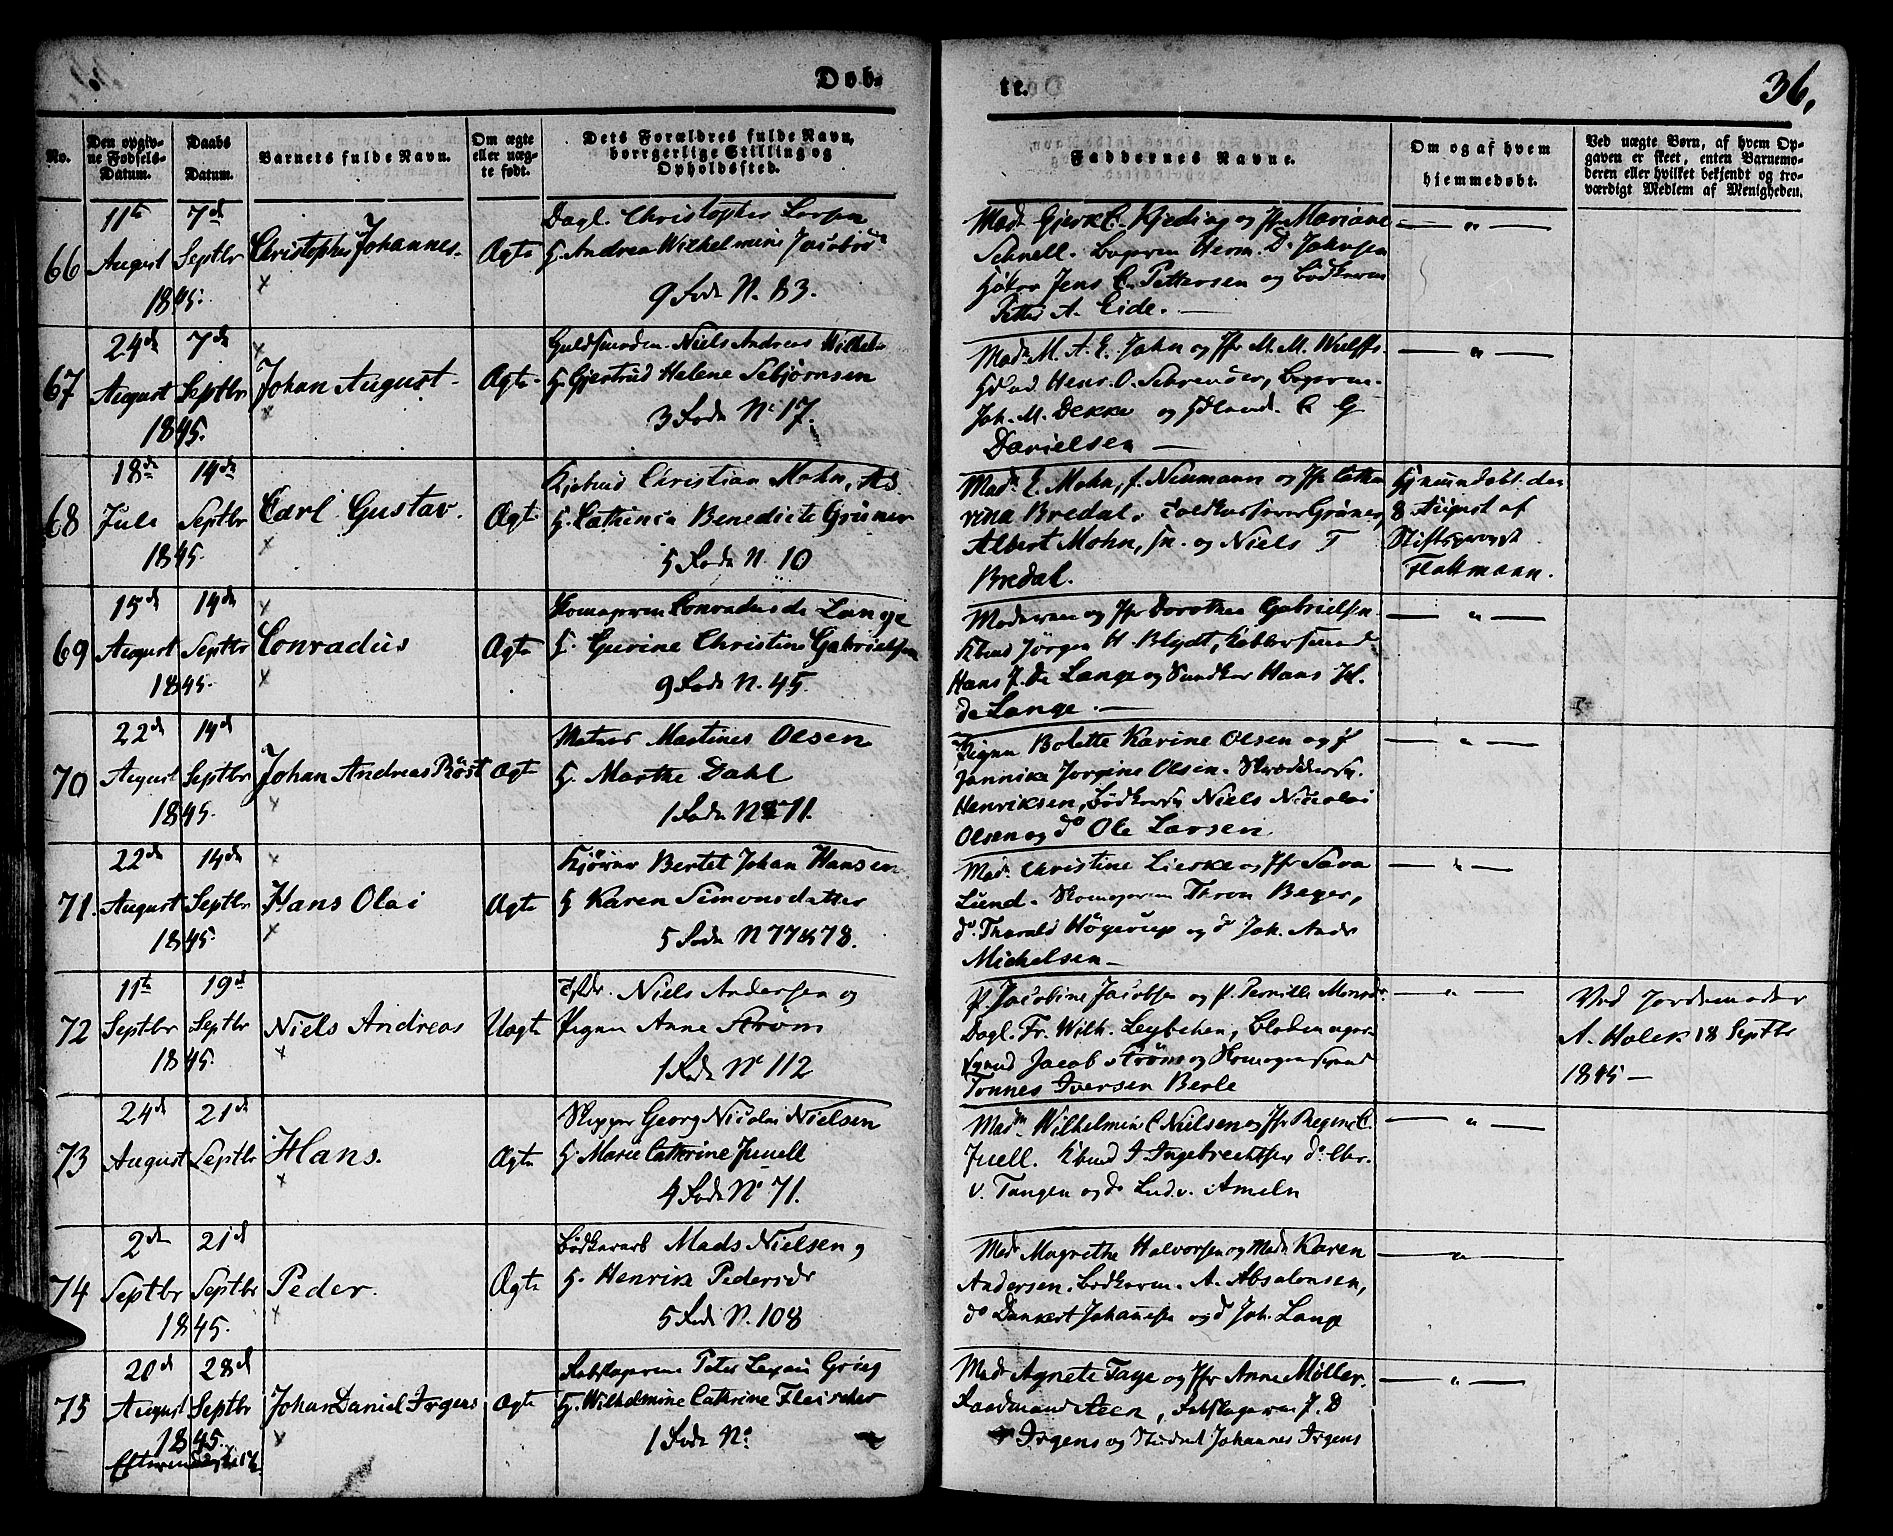 Døb-
te.
36.
No.
Den opgiv-
ne Fødsels-
Datum.
Daabs
Datum.
Barnets fulde Navn.
Om ægte
eller uæg-
te født.
Dets Forældres fulde Navn,
borgerlige Stilling og
Opholdssted.
Faddernes Navne.
Om og af hvem
hjemmedøbt.
Ved uægte Børn, af hvem Op-
gaven er skeet, enten Barnemo-
deren eller hvilket bekjendt og tro-
værdigt Medlem af Menigheden.
66
11te August 1845.
7de Septbr
Christopher Johannes.
Ægte
Dagl. Christopher Larsen
H. Andrea Wilhelmine Jacobsd
9 Rode N. 83.
Mad. C. Kjeding og Jfr Mariane
Schnell. Bageren Herm. D. Johnsen
Jens C. Pettersen og Bødkeren
Petter A. Eide.
— " —
67
24de August 1845.
7de Septbr
Johan August.
Ægte
Guldsmeden Niels Andreas
H. Gjertrud Helene Sebjørnsen
3 Rode No 17.
Madm M. A. E. Jahn og Jfr M. M. Wulff.
Henr. O. Schrøuder, Bageren
Joh. M. Dekke og C G
Danielsen
— " —
68
18de Juli 1845.
14de Septbr
Carl Gustav.
Ægte
Kjøbmd Christian Mohn, AS.
H. Cathinca Benedicte Grüner
5 Rode N. 10
Madm E. Mohn, f. Neumann og Jfr Catha
rina Bredal. Grüner,
Albert Mohn, sn. og Niels T
Bredal.
Hjemmedøbt den
8 August af
Stiftsprovst
69
15de August 1845.
14de Septbr
Conradus
Ægte
Skomageren Conradus de Lange
H. Gurine Christine Gabrielsen
9 Rode N. 45.
Moderen og Jfr Dorothea Gabrielsen
Kbmd Jørgen H. Blydt, Kobbersmed
Hans J. de Lange og Hans H.
de Lange.
— " —
70
22de August 1845.
14de Septbr
Johan Andreas Røst
Ægte
Matros Martines Olsen
H. Marthe Dahl
1 Rode No 71.
Pigen Bolette Karine Olsen og P
Jannike Jorgine Olsen. Skrædersv.
Henriksen, Bødkersv Niels Nicolai
Olsen og do Ole Larsen.
— " —
71.
22de August 1845.
14de Septbr
Hans Olai
Ægte
Kjører Bertet Johan Hansen
H Karen Simonsdatter
5 Rode N 77 & 78.
Mad. Christine Lieske og Jfr Sara
Lund. Skomageren Thron Beyer,
do. Tharald Høgerup og do Joh. Andr
Michelsen
— " —
72
11te Septbr 1845.
19de Septbr
Niels Andreas
Uægte
Niels Andersen og
Pigen Anne Strøm
1 Rode No 112
P. Jacobine Jacobsen og P. Pernille Monsdr.
Dagl. Fr. Wilh. Leybehen,
Svend Jacob Strøm og Skomagersvend
Tønnes Iversen Berle
— " —
Ved Jordemoder
A. Holck 18 Septbr
1845 —
73
24de August
21de Septbr
Hans.
Ægte
Skipper Georg Nicolai Nielsen
H. Marie Cathrine Juuell
4 Rode No 71.
Madm Wilhelmine C Nielsen og Jfr Regine C.
Juell. Kbmd J Ingebrechtsen do Chr.
v. Tangen og do Ludv. Ameln
— " —
74
2de Septbr 1845.
21de Septbr
Peder.
Ægte
Bødkerarb Mads Nielsen
H. Henrik Pedersdr
5 Rode N. 108
Mad Magrethe Halvorsen og Mad. Karen
Andersen. Bødkeren. A. Absalonsen,
do Dankert Johannesen og do Joh. Lange
— " —
75
20de August 1845.
28de Septbr
Johan Daniel Irgens
Ægte
Peter Lexau Grieg
H. Wilhelmine Cathrine Fleischer
1 Rode No
Mad Agnete Faye og Jfr Anne Møller.
Raadmand Aeen, J. D
Irgens og Student Johannes Irgens
— " —